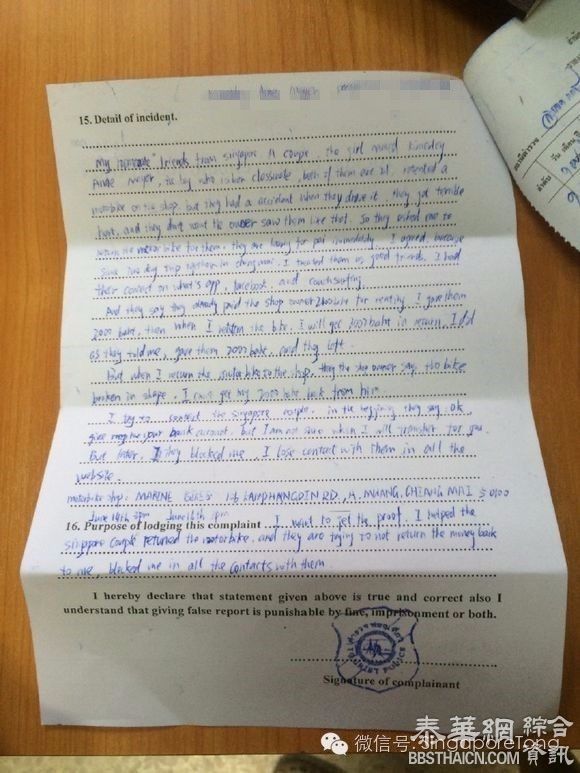 15. Detail of incident.
My friends from singapore. A couple. the girl named
Anne Meyer, the boy who is her classmate, both if them are 21, rented a
motobike on the shop. but they had a accident when they drove it. they got terrible
hurt, and they don't want the owner saw them like that. So they asked me to
return the motorbike for them. they are leaving for pai immediately. I agreed, because
one day trip together in chiang mai. I treated them as good friends. I had
their contact on what's app, facebook, and couchsurfing.
And they say they already paid the shop owner 2000 baht for renting. I gave them
2000 baht, then when I return the bike, I will get 2000 baht in return. I did
as they told me, gave them 2000 baht, and they left.
But when I return the motorbike to the shop, the shop owner say, the bike
broken in shape. I can't get my 2000 baht back from him.
I try to contact the singapore couple. in the beginning they say ok
give me your bank account. but I am not sure when I will transfer for you.
But later, they blocked me. I lose contact with them in all the
website.
motorbike shop: MARINE LAMPHANGDIN RD., A. MUANG, CHIANG MAI 50100
June 14th June 16th 7pm
16. Purpose of lodging this complaint. I want to get the proof. I helped the
singapore couple returned the motorbike. and they are trying to not return the money back
to me, blocked me in all the contacts with them
I hereby declare that statement given above is true and correct also I
understand that giving false report is punishable by fine, imprisonment or both.
TOURIST POLICE
Signature of complainant
微信号: SingaporeTong
泰華網 綜合資訊
BBSTHAICN.COM